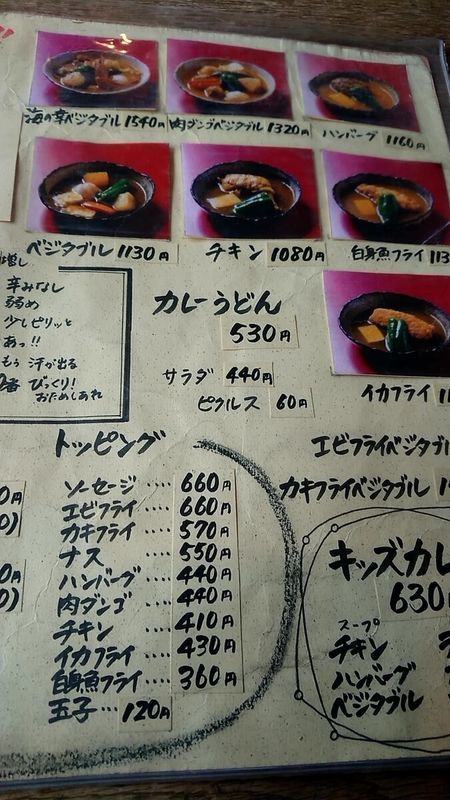 海の幸ベジタブル 1540円
肉ダンゴベジタブル 1320円
ハンバーグ 1160円
ベジタブル 1130円
チキン 1080円
白身魚フライ 113
増し
辛みなし
弱め
少しピリッと
あっ!!
もぅ 汗が出る
番 びっくり!
おためしあれ
カレーうどん
530円
サラダ 440円
ピクルス 60円
イカフライ
トッピング
ソーセージ ···· 660円
エビフライ ···· 660円
カキフライ ···· 570円
ナス ···· 550円
ハンバーグ ···· 440円
肉ダンゴ ···· 440円
チキン ···· 410円
イカフライ ···· 430円
白身魚フライ ···· 360円
玉子 ··· 120円
エビフライベジタブル
カキフライベジタブル
キッズカレ
630円
スープ
チキン
ハンバーグ
ベジタブル